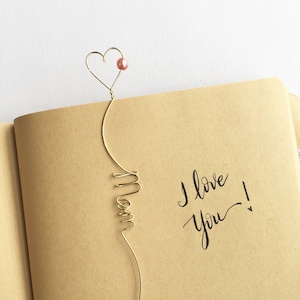 Mom
I love
You!